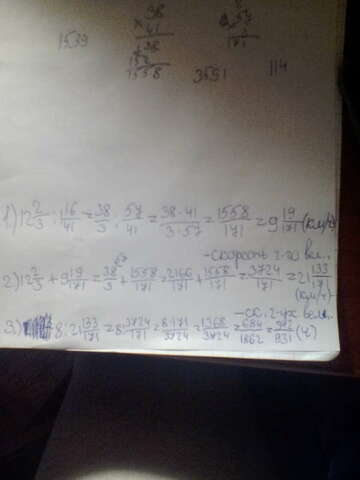 38
× 41
38
152
1558
57
3
171
1539
3591
114
1) 12 2/3 : 1 16/41 = 38/3 : 57/41 = 38·41/3·57 = 1558/171 = 9 19/171 (км/ч)
- скорость 2-го вел.
2) 12 2/3 + 9 19/171 = 38/3 + 1558/171 = 2166/171 + 1558/171 = 3724/171 = 21 133/171
(км/ч)
- ск. 2-ух вел.
3) 8 : 21 133/171 = 8 : 3724/171 = 8·171/3724 = 1368/3724 = 684/1862 = 342/931 (ч)